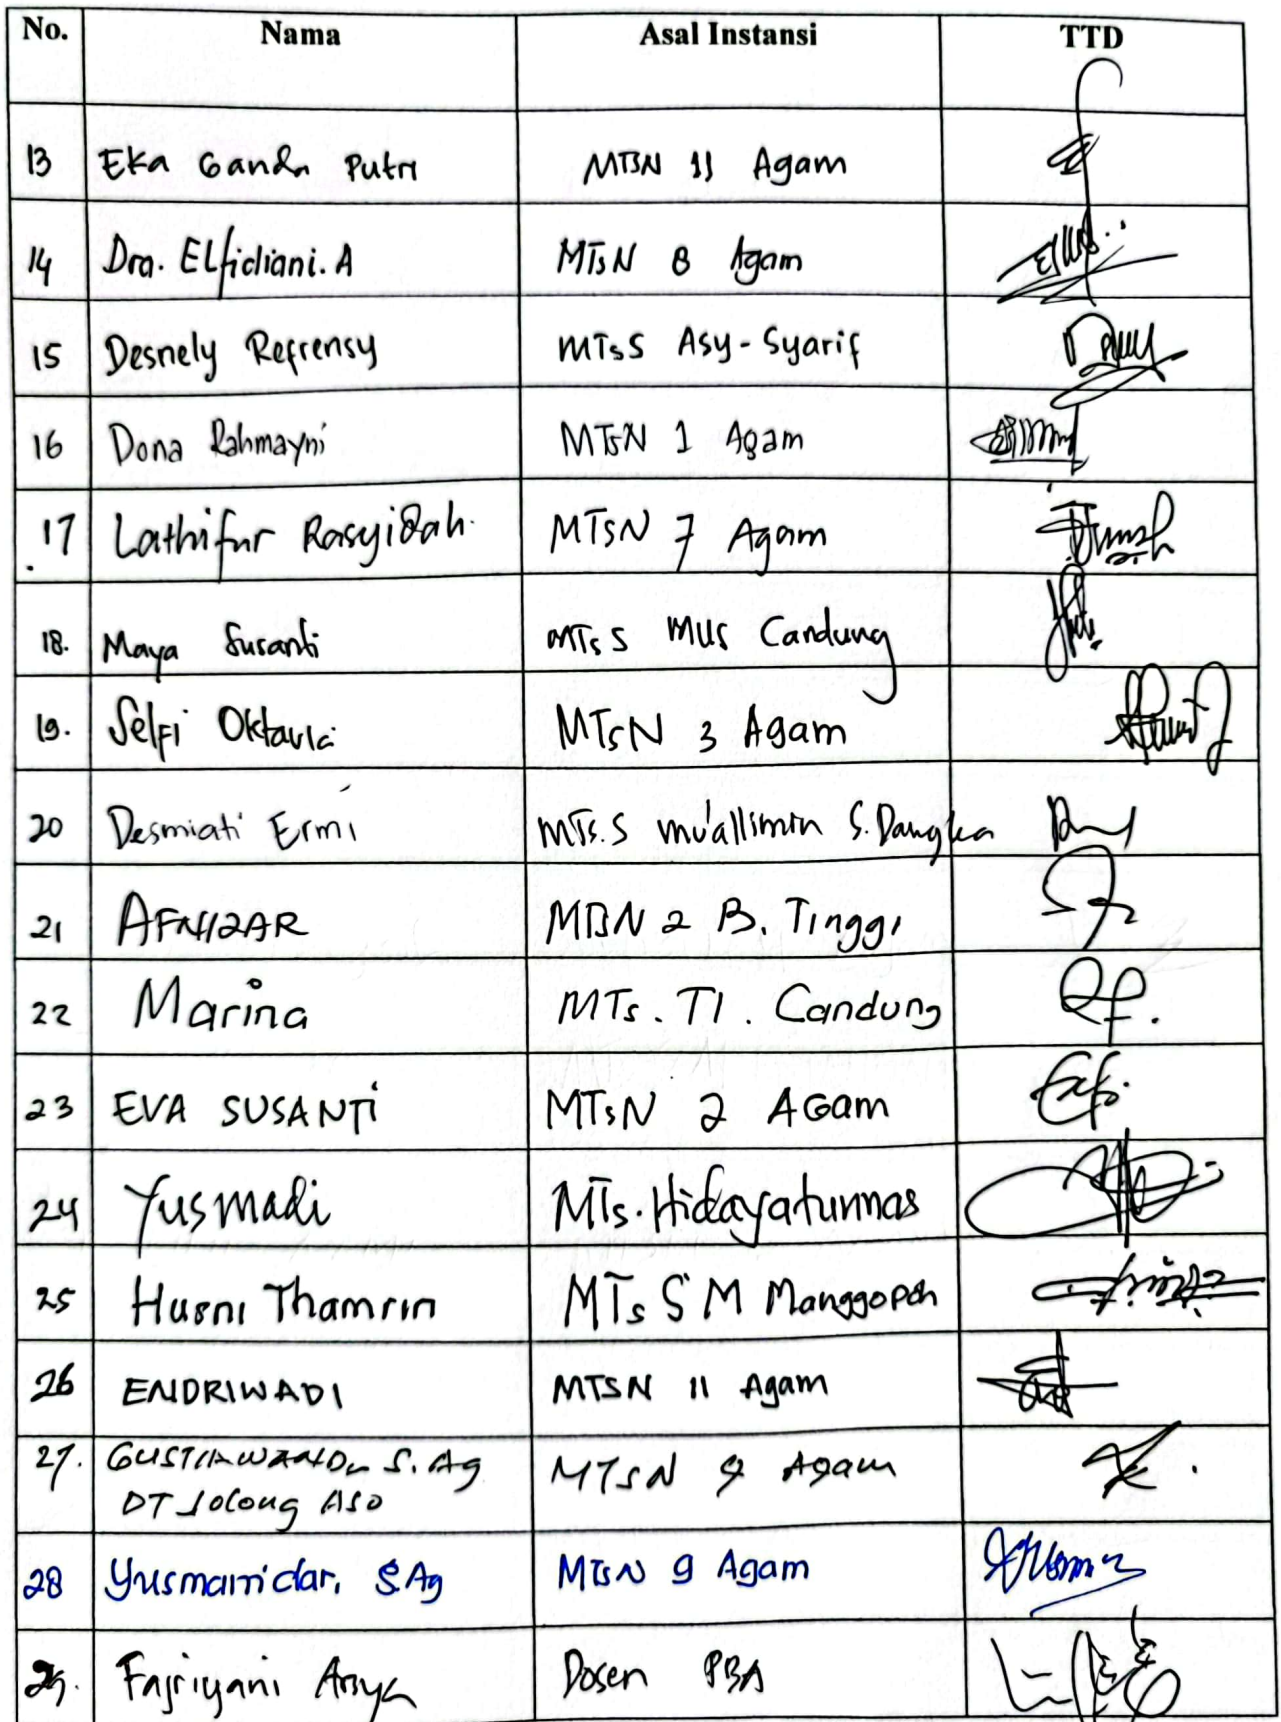 No. Nama Asal Instansi TTD
13 Eka Ganda Putri MTsN 11 Agam
14 Dra. Elfidiani. A MTsN 8 Agam
15 Desnely Refrensy MTsS Asy-Syarif
16 Dona Rahmayni MTsN 1 Agam
17 Lathifur Rasyidah. MTsN 7 Agam
18. Maya Susanti MTsS MUS Candung
19. Selfi Oktavia MTsN 3 Agam
20 Desmiati Ermi MTs.S mu'allimin S. Dangka
21 AFNIZAR MTsN 2 B. Tinggi
22 Marina MTs. TI. Candung
23 EVA SUSANTi MTsN 2 AGam
24 Yusmadi MTs. Hidayatunnas
25 Husni Thamrin MTs S M Manggopoh
26 ENDRIWADI MTSN 11 Agam
27. S. Ag MTsN Agam
DT
28 Yusmanidar, S.Ag MTsN 9 Agam
29. Fajriyani Dosen PBA